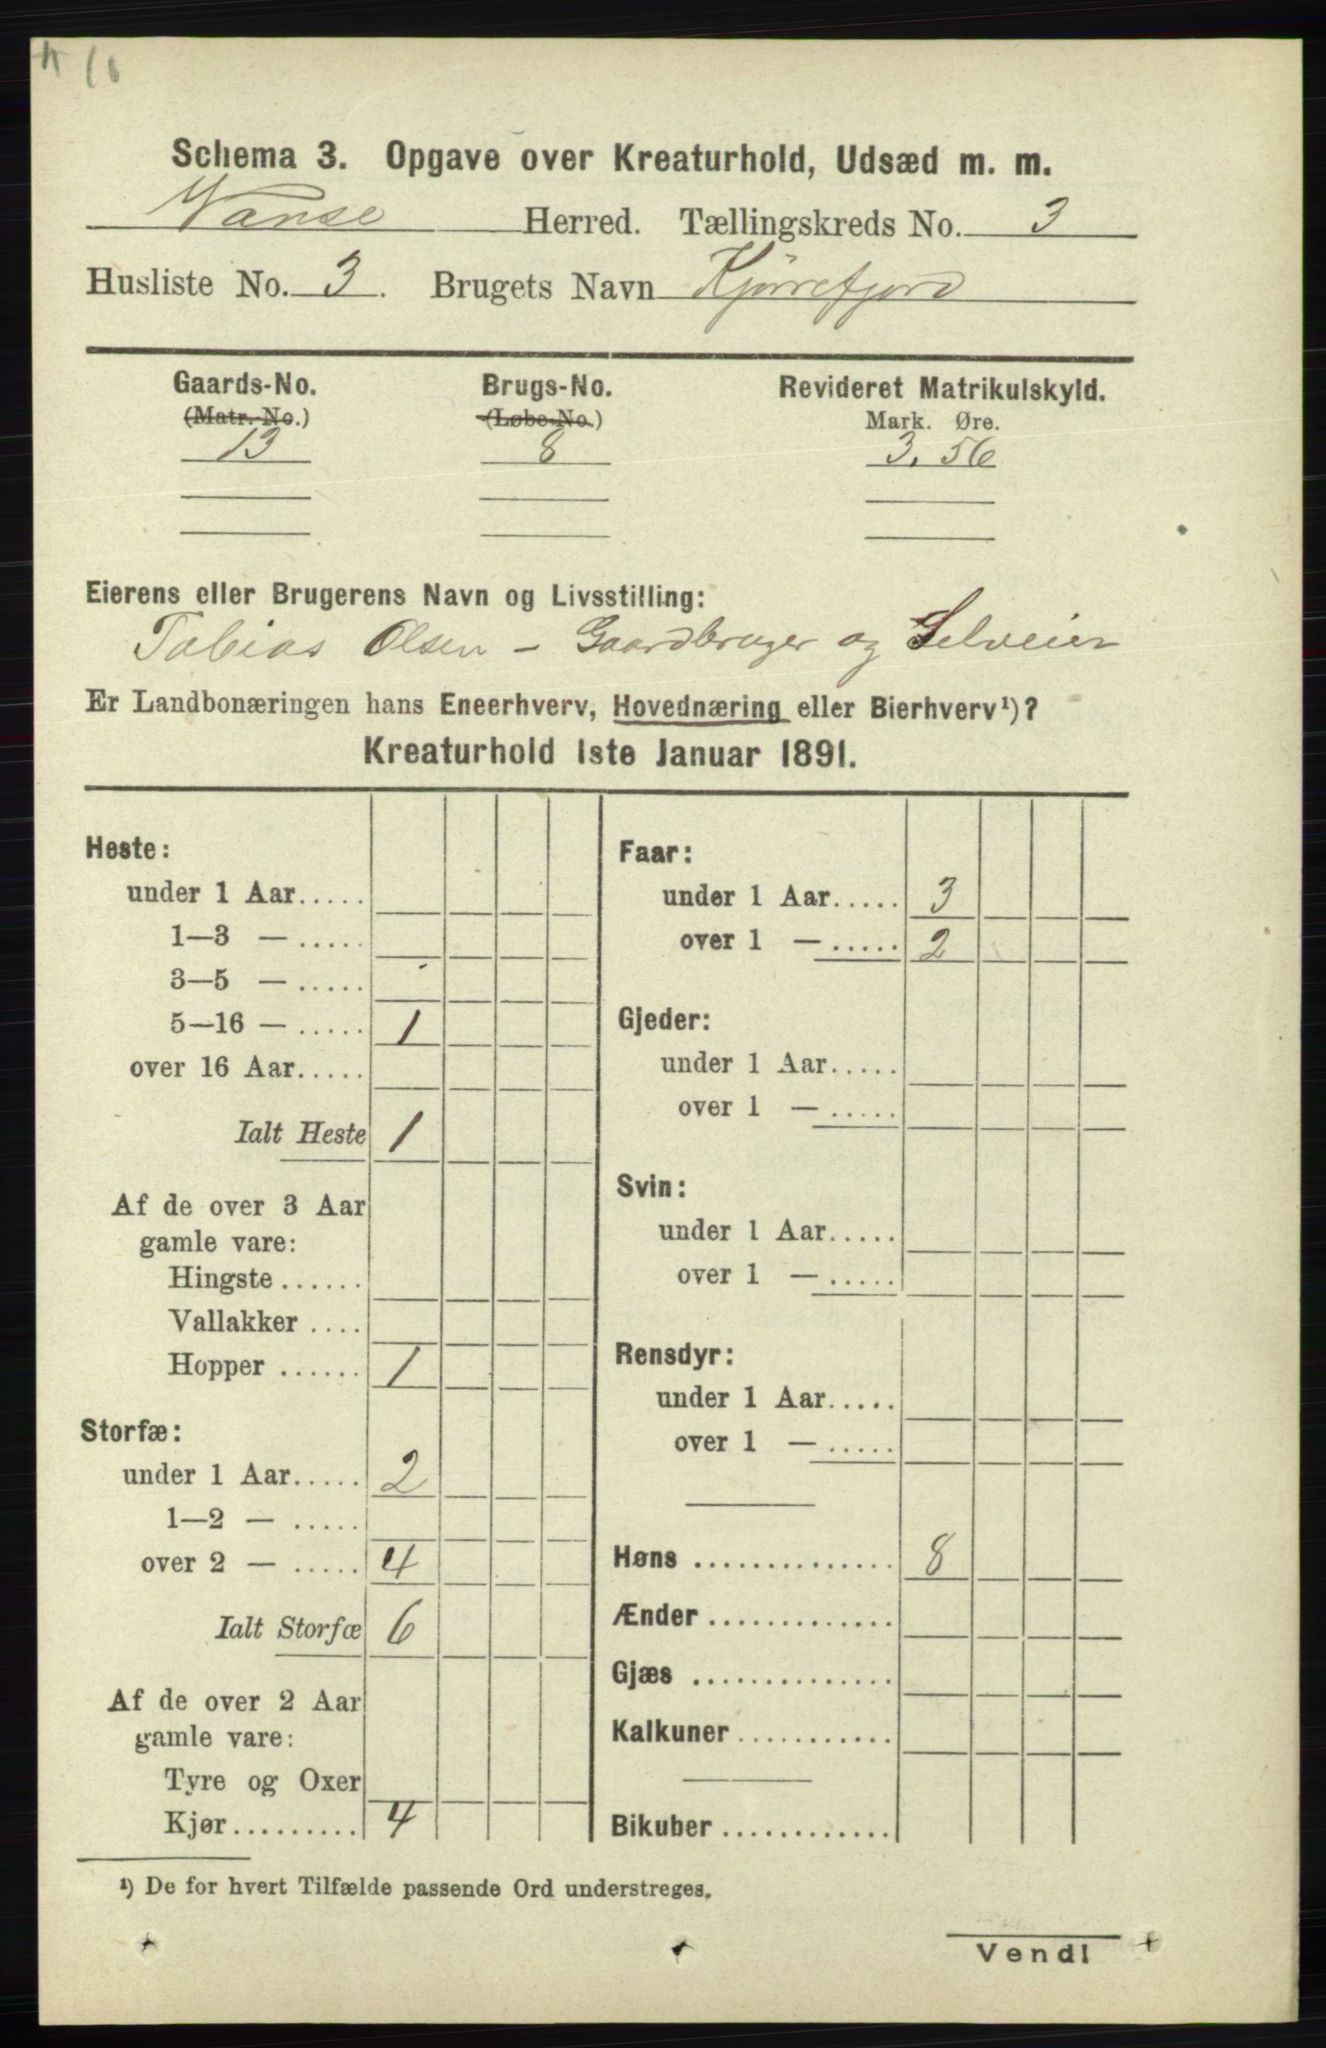 Schema 3. Opgave over Kreaturhold, Udsæd m. m.
Vanse Herred. Tællingskreds No. 3
Husliste No. 3. Brugets Navn Kjørrefjord
Gaards-No. Brugs-No. Revideret Matrikulskyld.
(Matr.-No.) (Løbe-No.) Mark. Øre.
13 8 3.56
Eierens eller Brugerens Navn og Livsstilling:
Tobias Olsen – Gaardbruger og Selveier
Er Landbonæringen hans Eneerhverv, Hovednæring eller Bierhverv¹)?
Kreaturhold 1ste Januar 1891.
Heste:
under 1 Aar.....
1—3 — .....
3—5 — .....
5—16 — ..... 1
over 16 Aar.....
Ialt Heste 1
Af de over 3 Aar
gamle vare:
Hingste......
Vallakker ....
Hopper ...... 1
Storfæ:
under 1 Aar..... 2
1—2 — .....
over 2 — ..... 4
Ialt Storfæ 6
Af de over 2 Aar
gamle vare:
Tyre og Oxer
Kjør......... 4
Faar:
under 1 Aar..... 3
over 1 — ..... 2
Gjeder:
under 1 Aar.....
over 1 — .....
Svin:
under 1 Aar.....
over 1 — .....
Rensdyr:
under 1 Aar.....
over 1 — .....
Høns .............. 8
Ænder.............
Gjæs ..............
Kalkuner...........
Bikuber............
¹) De for hvert Tilfælde passende Ord understreges.
Vend!